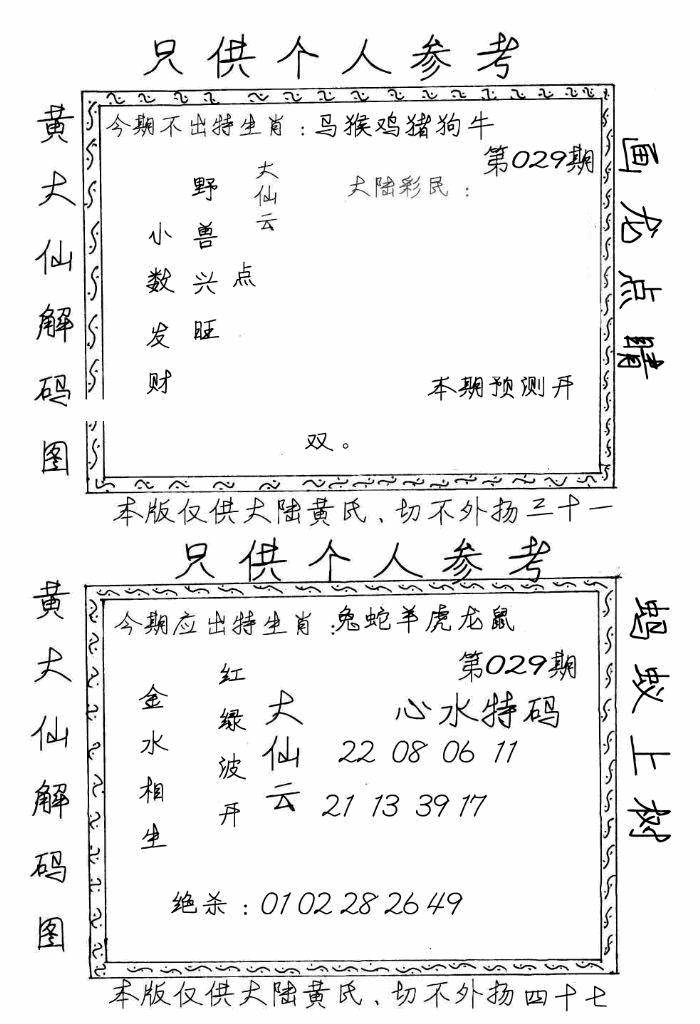 只供个人参考
黄大仙解码图
今期不出特生肖：马猴鸡猪狗牛
第029期
大仙云
大陆彩民：
野兽兴旺
小数发财
点
本期预测开
双。
画龙点睛
本版仅供大陆黄氏、切不外扬三十一
只供个人参考
黄大仙解码图
今期应出特生肖：兔蛇羊虎龙鼠
第029期
金水相生
红绿波开
大仙云
心水特码
22 08 06 11
21 13 39 17
绝杀：01 02 28 26 49
蚂蚁上树
本版仅供大陆黄氏、切不外扬四十七